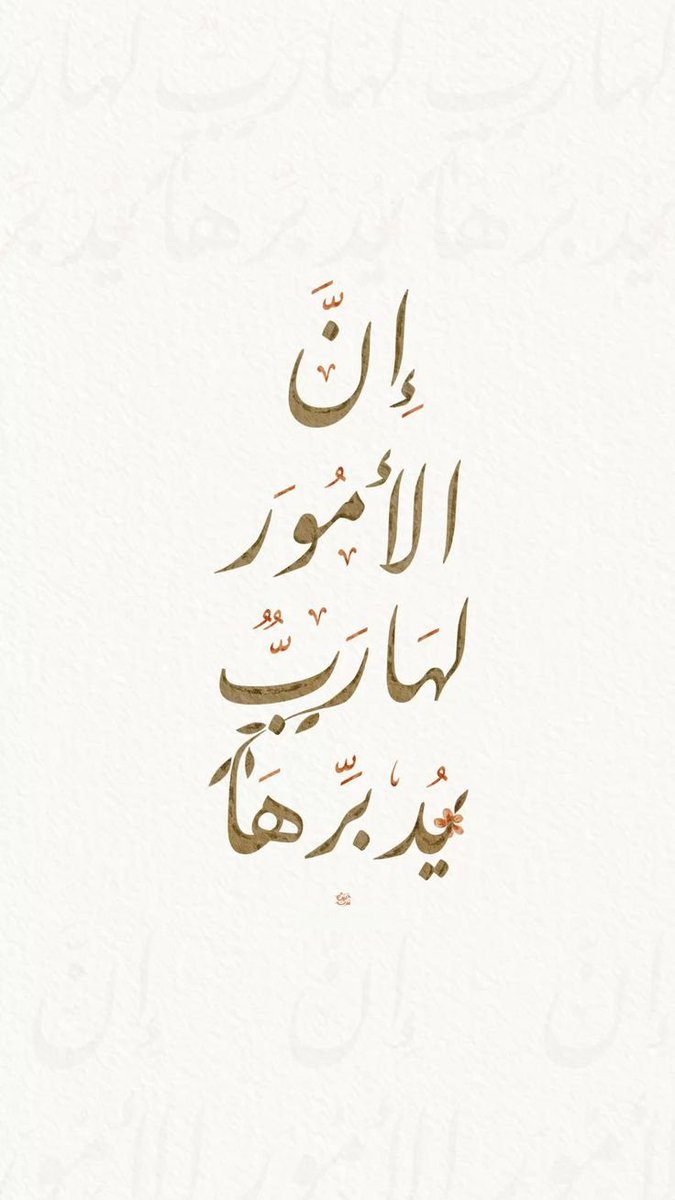 إِنَّ
الأمُورَ
لهَا رَبٌّ
يُدبِّرهَا